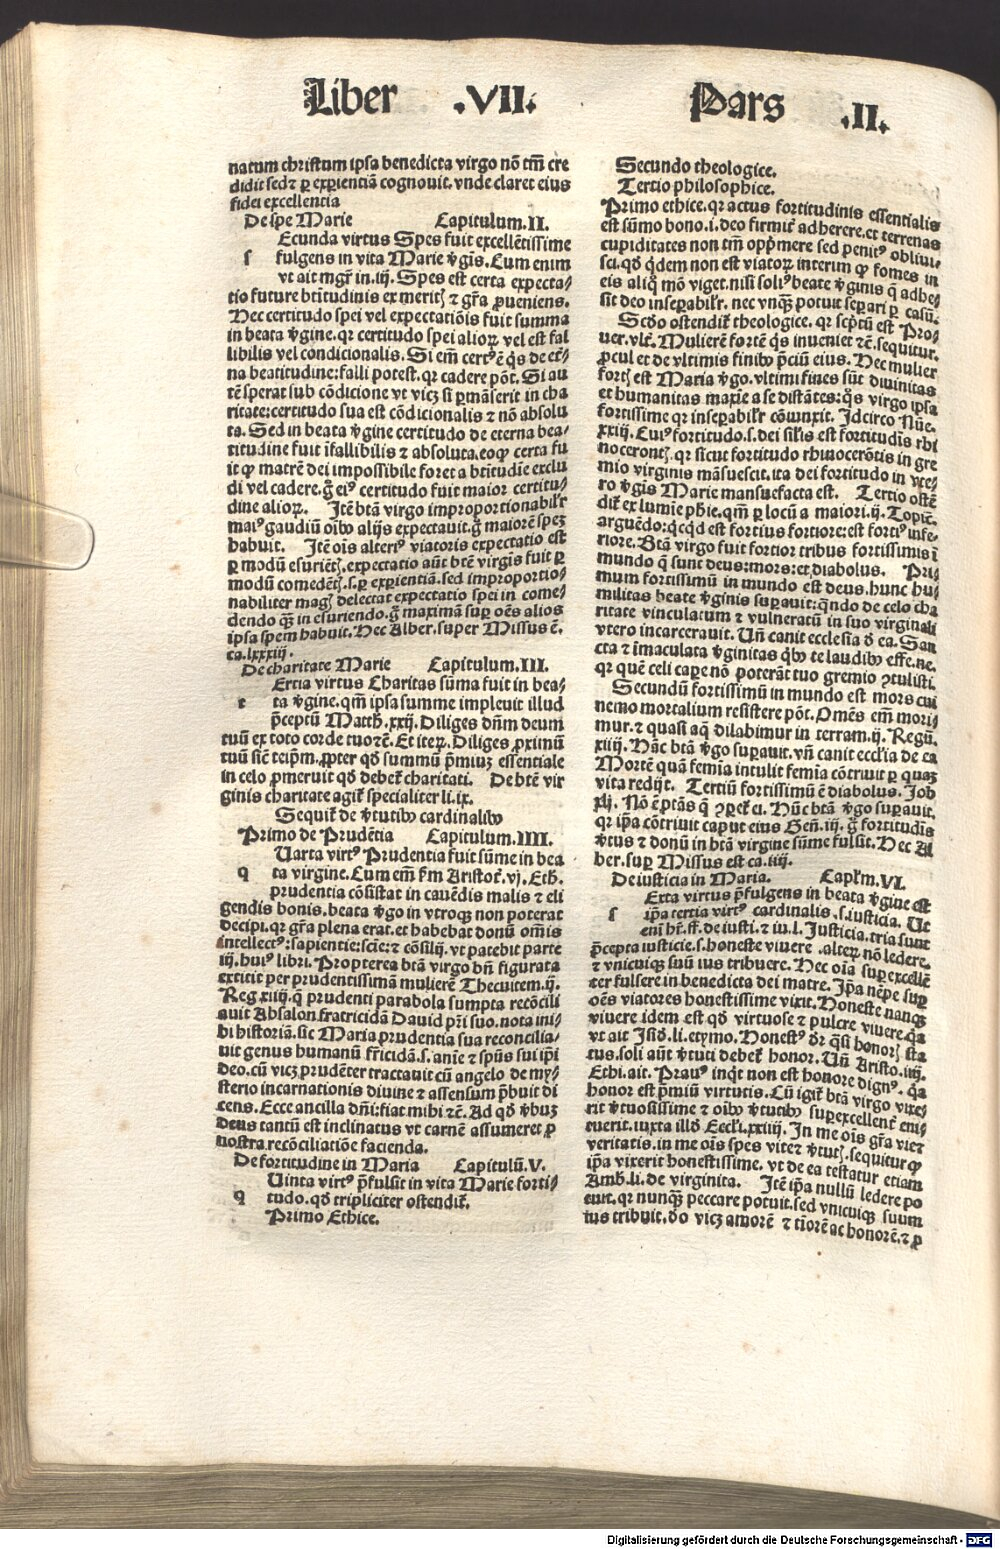 Liber .VII. Pars .II.
natum christum ipsa benedicta virgo nō tm̄ cre
didit sedꝫ ꝑ exꝑientiā cognouit. vnde claret eius
fidei excellentia
De spe Marie Capitulum.II.
s Ecunda virtus Spes fuit excellētissime
fulgens in vita Marie v̾gis. Cum enim
vt ait mgr̄ in.iij. Spes est certa expecta⸗
tio future btītudinis ex meritꝭ ⁊ gr̄a ꝓueniens.
Hec certitudo spei vel expectatiōis fuit summa
in beata v̾gine. qꝛ certitudo spei alioꝝ vel est fal
libilis vel condicionalis. Si em̄ certꝰ ē q̄s de et̄⸗
na beatitudine: falli potest. qꝛ cadere pōt. Si au
tē sperat sub cōdicione vt vicꝫ si ꝑmāserit in cha
ritate: certitudo sua est cōdicionalis ⁊ nō absolu
ta. Sed in beata v̾gine certitudo de eterna bea⸗
titudine fuit īfallibilis ⁊ absoluta. eoꝙ certa fu
it ꝙ matrē dei impossibile foret a btītudīe exclu
di vel cadere. g̊ eiꝰ certitudo fuit maior certitu⸗
dine alioꝝ. Itē btā virgo improportionabilr̄
maiꝰ gaudiū oībꝰ alijs expectauit. g̊ maiorē speꝫ
habuit. Itē oīs alteriꝰ viatoris expectatio est
ꝑ modū esuriētꝭ. expectatio aūt btē virgīs fuit ꝑ
modū comedētꝭ. s. ꝑ exꝑientiā. sed improportio⸗
nabiliter magꝭ delectat expectatio spei in come⸗
dendo qꝫ in esuriendo. g̊ maximā suꝑ oēs alios
ipsa spem habuit. Hec Alber. super Missus ē.
ca. lxxxiij.
De charitate Marie Capitulum.III.
t Ertia virtus Charitas sūma fuit in bea⸗
ta v̾gine. qm̄ ipsa summe impleuit illud
p̄ceptū Matth. xxij. Diliges dn̄m deum
tuū ex toto corde tuo ⁊ē. Et iteꝝ. Diliges ꝓximū
tuū sic̄ teipm̄. ꝓpter qd̄ summū p̄miuꝫ essentiale
in celo ꝓmeruit qd̄ debet̄ charitati. De btē vir
ginis charitate agit̄ specialiter li. ix.
Sequit̄ de v̾tutibꝰ cardinalibꝰ
Primo de Prudētia Capitulum.IIII.
q Uarta virtꝰ Prudentia fuit sūme in bea
ta virgine. Cum em̄ fm̄ Aristot̄. vj. Eth.
prudentia cōsistat in cauēdis malis ⁊ eli
gendis bonis. beata v̾go in vtroqꝫ non poterat
decipi. qꝛ gr̄a plena erat. et habebat donū oīmis
intellectꝰ: sapientie: scīe: ⁊ cōsilij. vt patebit parte
iij. huiꝰ libri. Propterea btā virgo bn̄ figurata
extitit per prudentissimā mulierē Thecuitem. ij.
Reg. xiiij. q̄ prudenti parabola sumpta recōcili
auit Absalon. fratricidā Dauid pr̄i suo. nota ini⸗
bi historiā. sic Maria prudentia sua reconcilia⸗
uit genus humanū fr̄icidā. s. aīe ⁊ sp̄us sui ip̄i
deo. cū vicꝫ prudēter tractauit cū angelo de my⸗
sterio incarnationis diuine ⁊ assensum p̄buit di
cens. Ecce ancilla dn̄i: fiat mihi ⁊ē. Ad qd̄ v̾buꝫ
deus tantū est inclinatus vt carnē assumeret ꝓ
nostra recōciliatiōe facienda.
De fortitudine in Maria Capitulū.V.
q Uinta virtꝰ p̄fulsit in vita Marie forti⸗
tudo. qd̄ tripliciter ostendit̄.
Primo Ethice.
Secundo theologice.
Tertio philosophice.
Primo ethice. qꝛ actus fortitudinis essentialis
est sūmo bono. i. deo firmit̄ adherere. et terrenas
cupiditates non tm̄ opp̄mere sed penitꝰ obliui⸗
sci. qd̄ q̄dem non est viatoꝝ interim ꝙ fomes in
eis aliq̄ mō viget. nisi soliꝰ beate v̾ginis q̄ adhe⸗
sit deo inseꝑabilr̄. nec vnqꝫ potuit seꝑari ꝑ casū.
Scd̄o ostendit̄ theologice. qꝛ sc̄ptū est Pro⸗
uer. vlt̄. Mulierē fortē q̄s inueniet ⁊ē. sequitur.
ꝓcul et de vltimis finibꝰ p̄ciū eius. Hec mulier
fortꝭ est Maria v̾go. vltimi fines sūt diuinitas
et humanitas maxīe a se distātes: q̄s virgo ip̄sa
fortissime qꝛ inseꝑabilr̄ cōiunxit. Idcirco Nūe.
xxiij. Cuiꝰ fortitudo. s. dei silīs est fortitudīs rhi
nocerontꝭ. qꝛ sicut fortitudo rhinocerōtis in gre
mio virginis māsuescit. ita dei fortitudo in vte⸗
ro v̾gīs Marie mansuefacta est. Tertio ostē
dit̄ ex lumīe phīe. qm̄ ꝑ locū a maiori. ij. Topic̄.
arguēdo: q̄cqd̄ est fortius fortiore: est fortiꝰ infe⸗
riore. Btā virgo fuit fortior tribus fortissimis ī
mundo q̄ sunt deus: mors: et diabolus. Pri⸗
mum fortissimū in mundo est deus. hunc hu⸗
militas beate v̾ginis suꝑauit: qn̄do de celo cha
ritate vinculatum ⁊ vulneratū in suo virginali
vtero incarcerauit. Un̄ canit ecclesīa d̄ ea. San
cta ⁊ īmaculata v̾ginitas qͥbꝰ te laudibꝰ effe. ne.
qꝛ quē celi caꝑe nō poterāt tuo gremio ꝯtulisti.
Secundū fortissimū in mundo est mors cui
nemo mortalium resistere pōt. Omēs em̄ mori⸗
mur. ⁊ quasi aq̄ dilabimur in terram. ij. Regū.
xiiij. Hāc btā v̾go suꝑauit. vn̄ canit eccl̄ia de ea
Mortē quā femīa intulit femīa cōtriuit ꝑ quaꝫ
vita redijt. Tertiū fortissimū ē diabolus. Job
xlj. Nō ē ptās q̄ ꝯꝑet̄ ei. Hūc btā v̾go suꝑauit.
qꝛ ip̄a cōtriuit caput eius Gen̄. iij. g̊ fortitudīs
v̾tus ⁊ donū in btā virgine sūme fulsit. Hec Al
ber. suꝑ Missus est ca. iiij.
De iusticia in Maria. Caplm̄.VI.
s Exta virtus p̄fulgens in beata v̾gine est
ip̄a tertia virtꝰ cardinalis. s. iusticia. Ut
eni hr̄. ff. de iusti. ⁊ iu. l. Justicia. tria sunt
p̄cepta iusticie. s. honeste viuere. alteꝝ nō ledere.
⁊ vnicuiqꝫ suū ius tribuere. Hec oīa suꝑexcellē
ter fulsere in benedicta dei matre. Ip̄a nēpe suꝑ
oēs viatores honestissime vixit. Honeste nanqꝫ
viuere idem est qd̄ virtuose ⁊ pulcre viuere. q̄a
vt ait Isid̄. li. etymo. Honestꝰ dr̄ q̄si honorꝭ sta
tus. soli aūt v̾tuti debet̄ honor. Un̄ Aristo. iiij.
Ethi. ait. Prauꝰ inqͥt non est honore dignꝰ. q̄a
honor est p̄miū virtutis. Cū igit̄ btā virgo vixe⸗
rit v̾tuosissime ⁊ oībꝰ v̾tutibꝰ suꝑexcellent̄ eni⸗
tuerit. iuxta illd̄ Eccli. xxiiij. In me oīs gr̄a vie ⁊
veritatis. in me oīs spes vite ⁊ v̾tutꝭ. sequitur ꝙ
ip̄a vixerit honestissime. vt de ea testatur etiam
Amb. li. de virginita. Itē ip̄a nullū ledere po
tuit. qꝛ nunqꝫ peccare potuit. sed vnicuiqꝫ suum
ius tribuit. d̄o vicꝫ amorē ⁊ tīorē ac honorē. ⁊ ꝓ
Digitalisierung gefördert durch die Deutsche Forschungsgemeinschaft - DFG